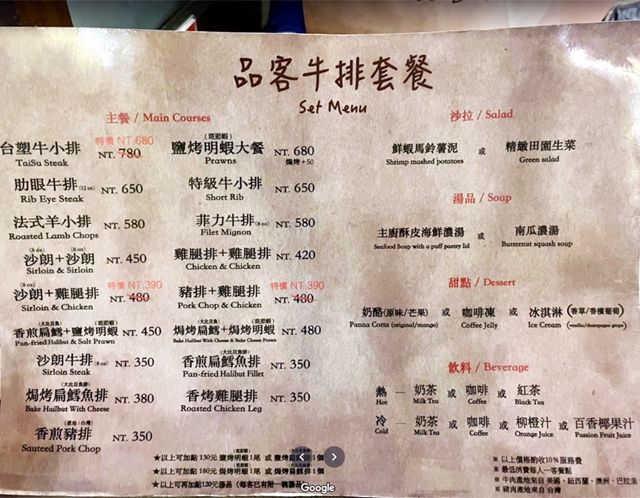 品客牛排套餐
Set Menu
主餐 / Main Courses
台塑牛小排 特價 NT.680 NT. 780
TaiSu Steak
肋眼牛排 (12 oz) NT. 650
Rib Eye Steak
法式羊小排 NT. 580
Roasted Lamb Chops
(8 oz) (8 oz)
沙朗+沙朗 NT. 450
Sirloin & Sirloin
(8 oz)
沙朗+雞腿排 特價 NT.390 NT. 480
Sirloin & Chicken
(大比目魚) (斑節蝦)
香煎扁鱈+鹽烤明蝦 NT. 450
Pan-fried Halibut & Salt Prawn
沙朗牛排 (8 oz) NT. 350
Sirloin Steak
(大比目魚排)
焗烤扁鱈魚排 NT. 380
Bake Halibut With Cheese
(產地/台灣)
香煎豬排 NT. 350
Sauteed Pork Chop
(斑節蝦)
鹽烤明蝦大餐 NT. 680
Prawns 焗烤 +50
特級牛小排 NT. 650
Short Rib
菲力牛排 (8 oz) NT. 580
Filet Mignon
雞腿排+雞腿排 NT. 420
Chicken & Chicken
豬排+雞腿排 特價 NT.390 NT. 480
Pork Chop & Chicken
(大比目魚) (斑節蝦)
焗烤扁鱈+焗烤明蝦 NT. 480
Bake Halibut With Cheese & Bake Cheese Prawn
(大比目魚排)
香煎扁鱈魚排 NT. 350
Pan-fried Halibut Fillet
香烤雞腿排 NT. 350
Roasted Chicken Leg
★以上可加點 130元 鹽烤明蝦1尾 或 鹽烤扁鱈排1個
★以上可加點 180元 焗烤明蝦1尾 或 焗烤扁鱈排1個
★以上可再加點120元湯品 (每客已有附一碗湯)
沙拉 / Salad
鮮蝦馬鈴薯泥 或 精緻田園生菜
Shrimp mashed potatoes Green salad
湯品 / Soup
主廚酥皮海鮮濃湯 或 南瓜濃湯
Seafood Soup with a puff pastry lid Butternut squash soup
甜點 / Dessert
奶酪(原味/芒果) 或 咖啡凍 或 冰淇淋 (香草/香檳葡萄)
Panna Cotta (original/mango) Coffee Jelly Ice Cream (vanilla/champagne grape)
飲料 / Beverage
熱 — 奶茶 或 咖啡 或 紅茶
Hot Milk Tea Coffee Black Tea
冷 — 奶茶 或 咖啡 或 柳橙汁 或 百香椰果汁
Cold Milk Tea Coffee Orange Juice Passion Fruit Juice
※ 以上價格酌收10%服務費
※ 最低消費每人一客餐點
※ 牛肉產地來自 美國、紐西蘭、澳洲、巴拉圭
※ 豬肉產地來自 台灣
Google